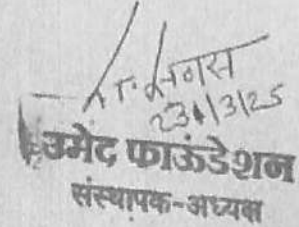 23/3/25
उमेद फाऊंडेशन
संस्थापक-अध्यक्ष